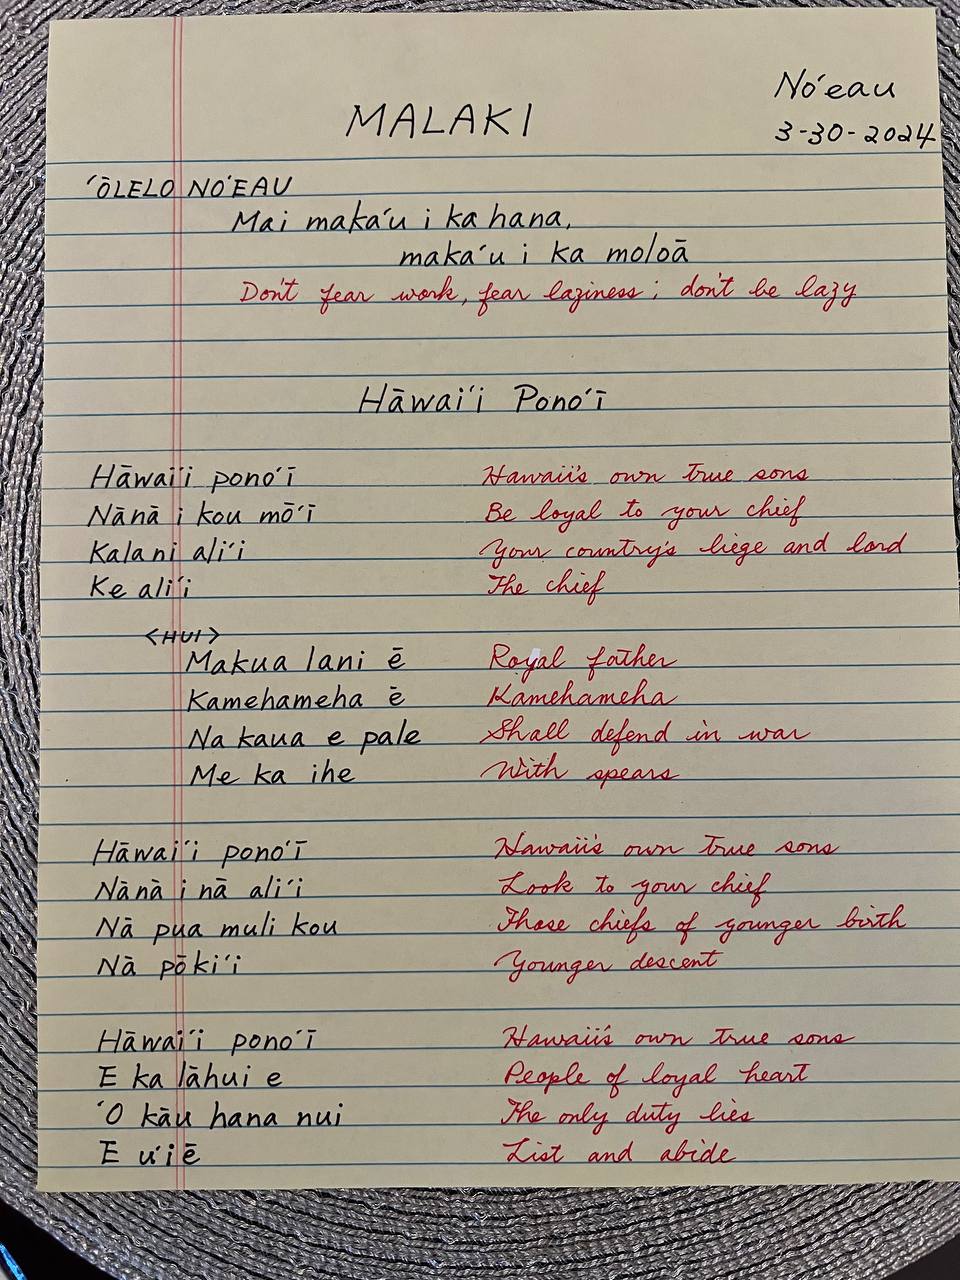 Noʻeau
MALAKI
3-30-2024
ʻŌLELO NOʻEAU
Mai makaʻu i ka hana,
makaʻu i ka moloā
Don't fear work, fear laziness; don't be lazy
Hāwaiʻi Ponoʻī
Hāwaiʻi ponoʻī
Hawaii's own true sons
Nānā i kou mōʻī
Be loyal to your chief
Kalani aliʻi
Your country's liege and lord
Ke aliʻi
The chief
<HUI>
Makua lani ē
Royal father
Kamehameha ē
Kamehameha
Na kaua e pale
Shall defend in war
Me ka ihe
With spears
Hāwaiʻi ponoʻī
Hawaii's own true sons
Nānā i nā aliʻi
Look to your chief
Nā pua muli kou
Those chiefs of younger birth
Nā pōkiʻi
Younger descent
Hāwaiʻi ponoʻī
Hawaii's own true sons
E ka lāhui e
People of loyal heart
ʻO kāu hana nui
The only duty lies
E uʻi ē
List and abide